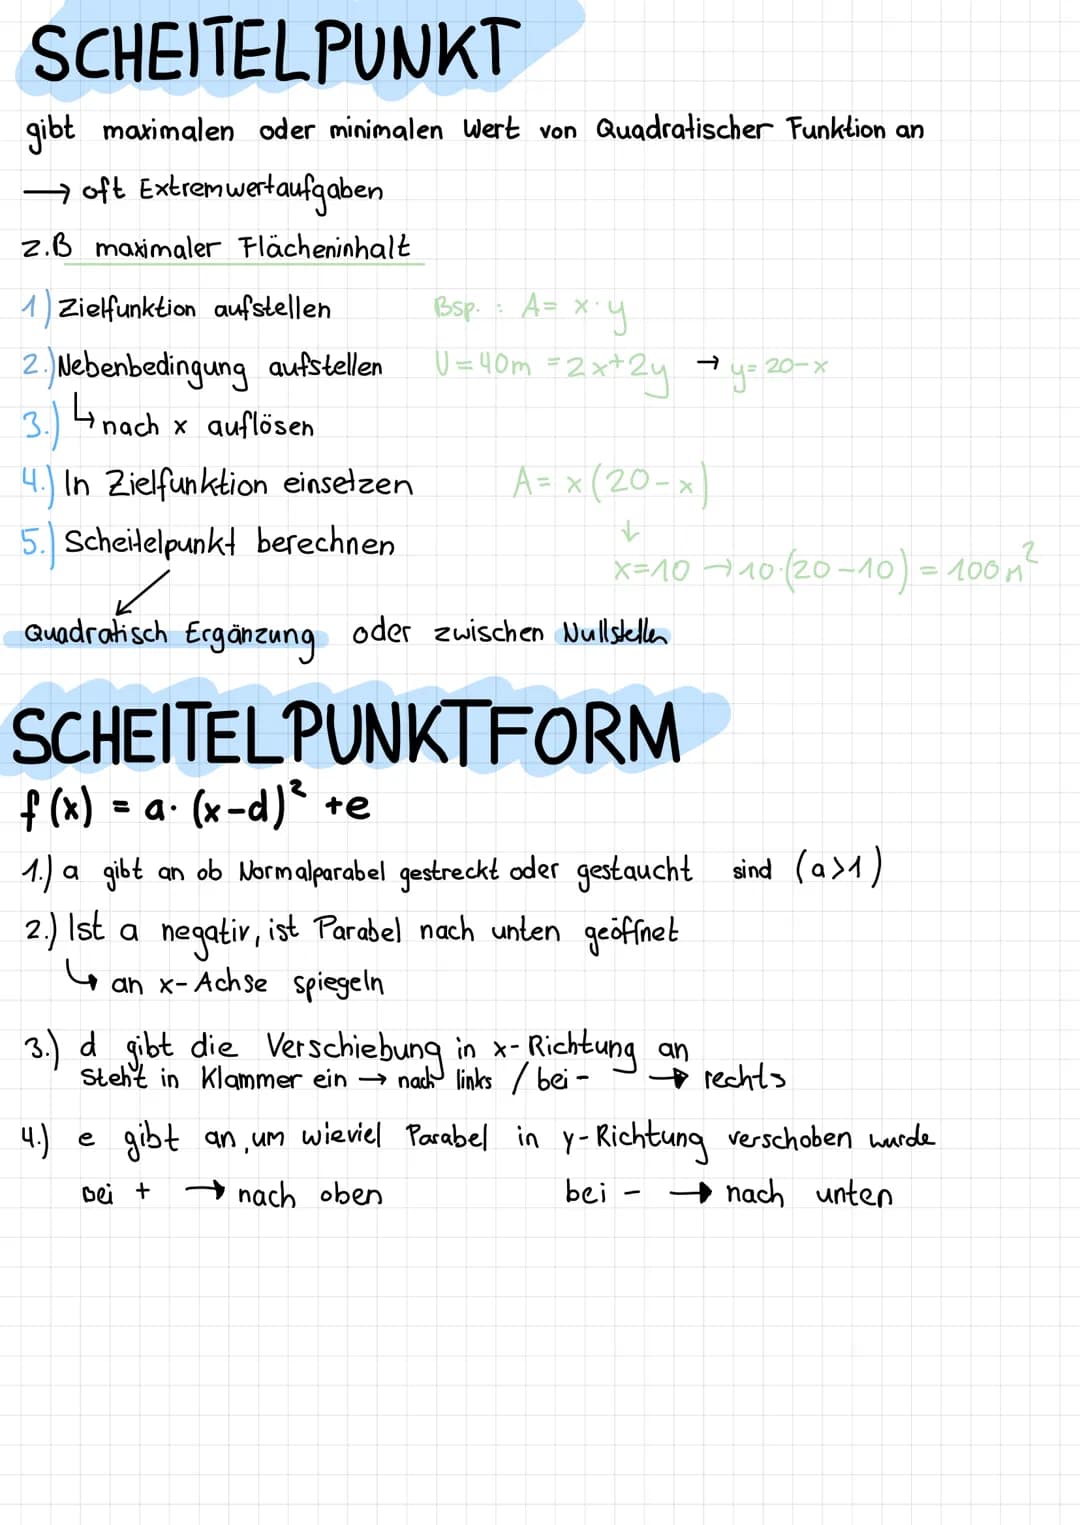 SCHEITELPUNKT
gibt maximalen oder minimalen Wert von Quadratischer Funktion an
→ oft Extremwertaufgaben
z.B maximaler Flächeninhalt
1) Zielfunktion aufstellen Bsp. : A= x·y
2.) Nebenbedingung aufstellen U=40m =2x+2y → y= 20-x
3.) ↳ nach x auflösen
4.) In Zielfunktion einsetzen A= x(20-x)
↓
5.) Scheitelpunkt berechnen
x=10 → 10·(20-10) = 100m²
Quadratisch Ergänzung oder zwischen Nullstellen
SCHEITELPUNKTFORM
f(x) = a· (x-d)² +e
1.) a gibt an ob Normalparabel gestreckt oder gestaucht sind (a>1)
2.) Ist a negativ, ist Parabel nach unten geöffnet
↳ an x-Achse spiegeln
3.) d gibt die Verschiebung in x-Richtung an
Steht in Klammer ein → nach links / bei - → rechts
4.) e gibt an, um wieviel Parabel in y-Richtung verschoben wurde
bei + → nach oben bei - → nach unten